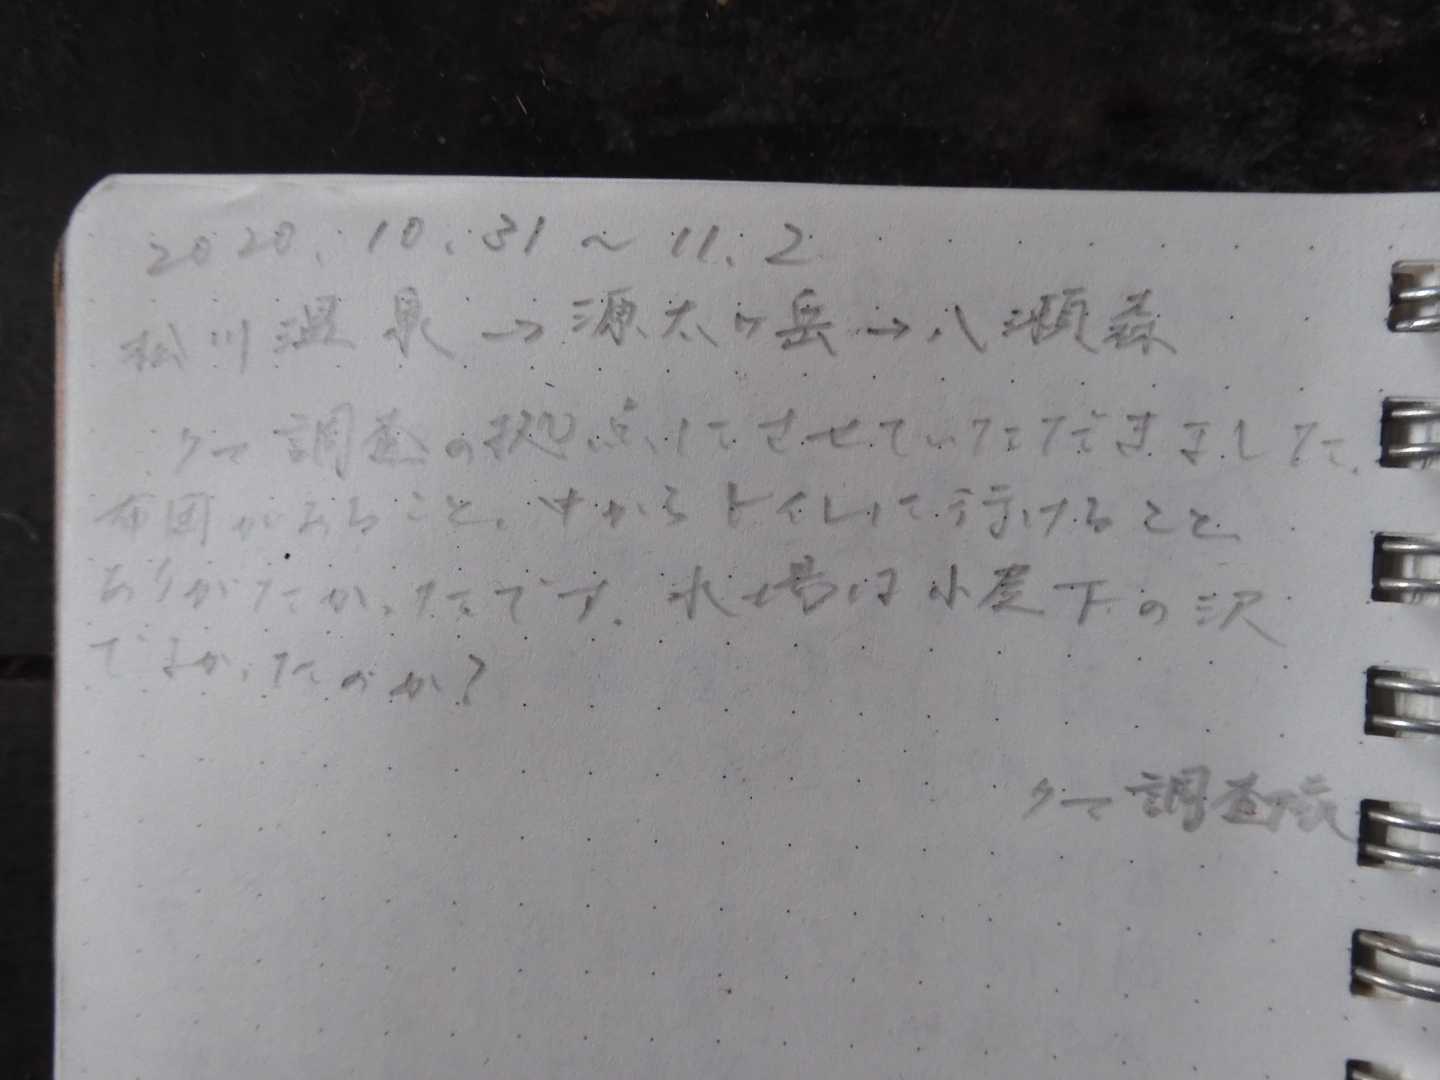 2020.10.31～11.2
松川温泉→源太ヶ岳→八瀬森
クマ調査の拠点にさせていただきました。
布団があること、中からトイレに行けること
ありがたかったです。水場は小屋下の沢
でよかったのか?
クマ調査隊